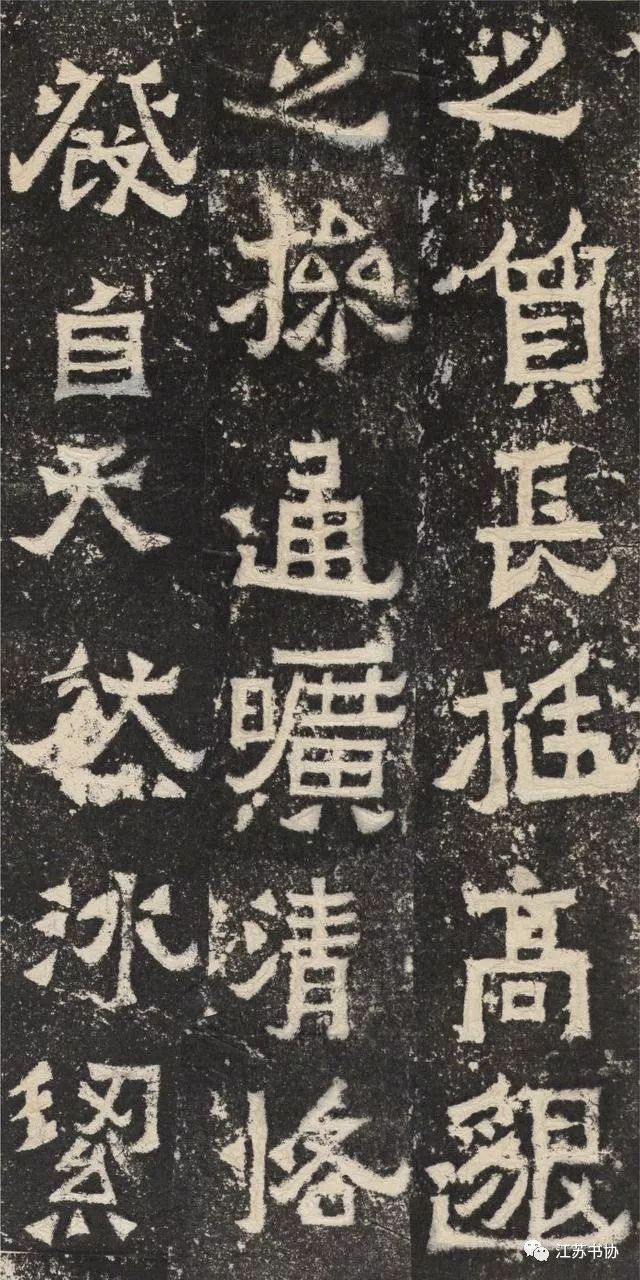 之質長挺高邈
之操通曠清恪
發自天然冰絜
江苏书协